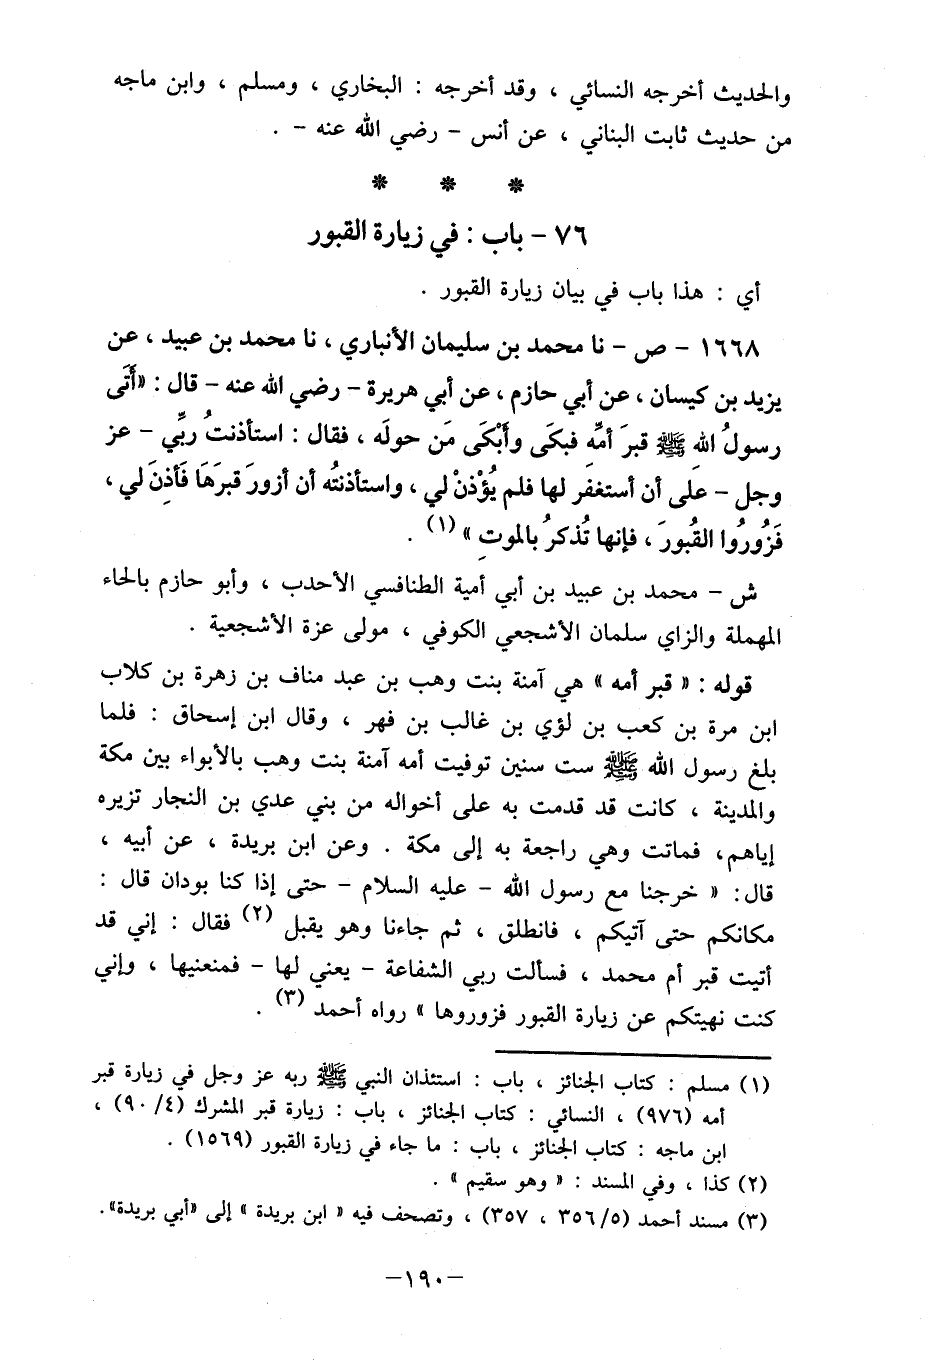 والحديث أخرجه النسائي ، وقد أخرجه : البخاري ، ومسلم ، وابن ماجه
من حديث ثابت البناني ، عن أنس – رضي الله عنه – .
* * *
٧٦ – باب : في زيارة القبور
أي : هذا باب في بيان زيارة القبور .
١٦٦٨ – ص – نا محمد بن سليمان الأنباري ، نا محمد بن عبيد ، عن
يزيد بن كيسان ، عن أبي حازم ، عن أبي هريرة – رضي الله عنه – قال : «أَتَى
رسولُ اللهِ ﷺ قبرَ أمِّه فبكَى وأَبْكَى مَن حولَه ، فقال : استأذنتُ ربِّي – عز
وجل – على أن أستغفر لها فلم يُؤْذنْ لي ، واستأذنتُه أن أزورَ قبرَهَا فَأذِنَ لي ،
فَزُورُوا القُبورَ ، فإنها تُذكرُ بالموتِ » (١) .
ش – محمد بن عبيد بن أبي أمية الطنافسي الأحدب ، وأبو حازم بالحاء
المهملة والزاي سلمان الأشجعي الكوفي ، مولى عزة الأشجعية .
قوله : « قبر أمه » هي آمنة بنت وهب بن عبد مناف بن زهرة بن كلاب
ابن مرة بن كعب بن لؤي بن غالب بن فهر ، وقال ابن إسحاق : فلما
بلغ رسول الله ﷺ ست سنين توفيت أمه آمنة بنت وهب بالأبواء بين مكة
والمدينة ، كانت قد قدمت به على أخواله من بني عدي بن النجار تزيره
إياهم، فماتت وهي راجعة به إلى مكة . وعن ابن بريدة ، عن أبيه ،
قال: « خرجنا مع رسول الله – عليه السلام – حتى إذا كنا بودان قال :
مكانكم حتى آتيكم ، فانطلق ، ثم جاءنا وهو يقبل (٢) فقال : إني قد
أتيت قبر أم محمد ، فسألت ربي الشفاعة – يعني لها – فمنعنيها ، وإني
كنت نهيتكم عن زيارة القبور فزوروها » رواه أحمد (٣) .
(١) مسلم : كتاب الجنائز ، باب : استئذان النبي ﷺ ربه عز وجل في زيارة قبر
أمه (٩٧٦) ، النسائي : كتاب الجنائز ، باب : زيارة قبر المشرك (٩٠/٤) ،
ابن ماجه : كتاب الجنائز ، باب : ما جاء في زيارة القبور (١٥٦٩) .
(٢) كذا ، وفي المسند : « وهو سقيم » .
(٣) مسند أحمد (٣٥٦/٥ ، ٣٥٧) ، وتصحف فيه « ابن بريدة » إلى «أبي بريدة».
–١٩٠–